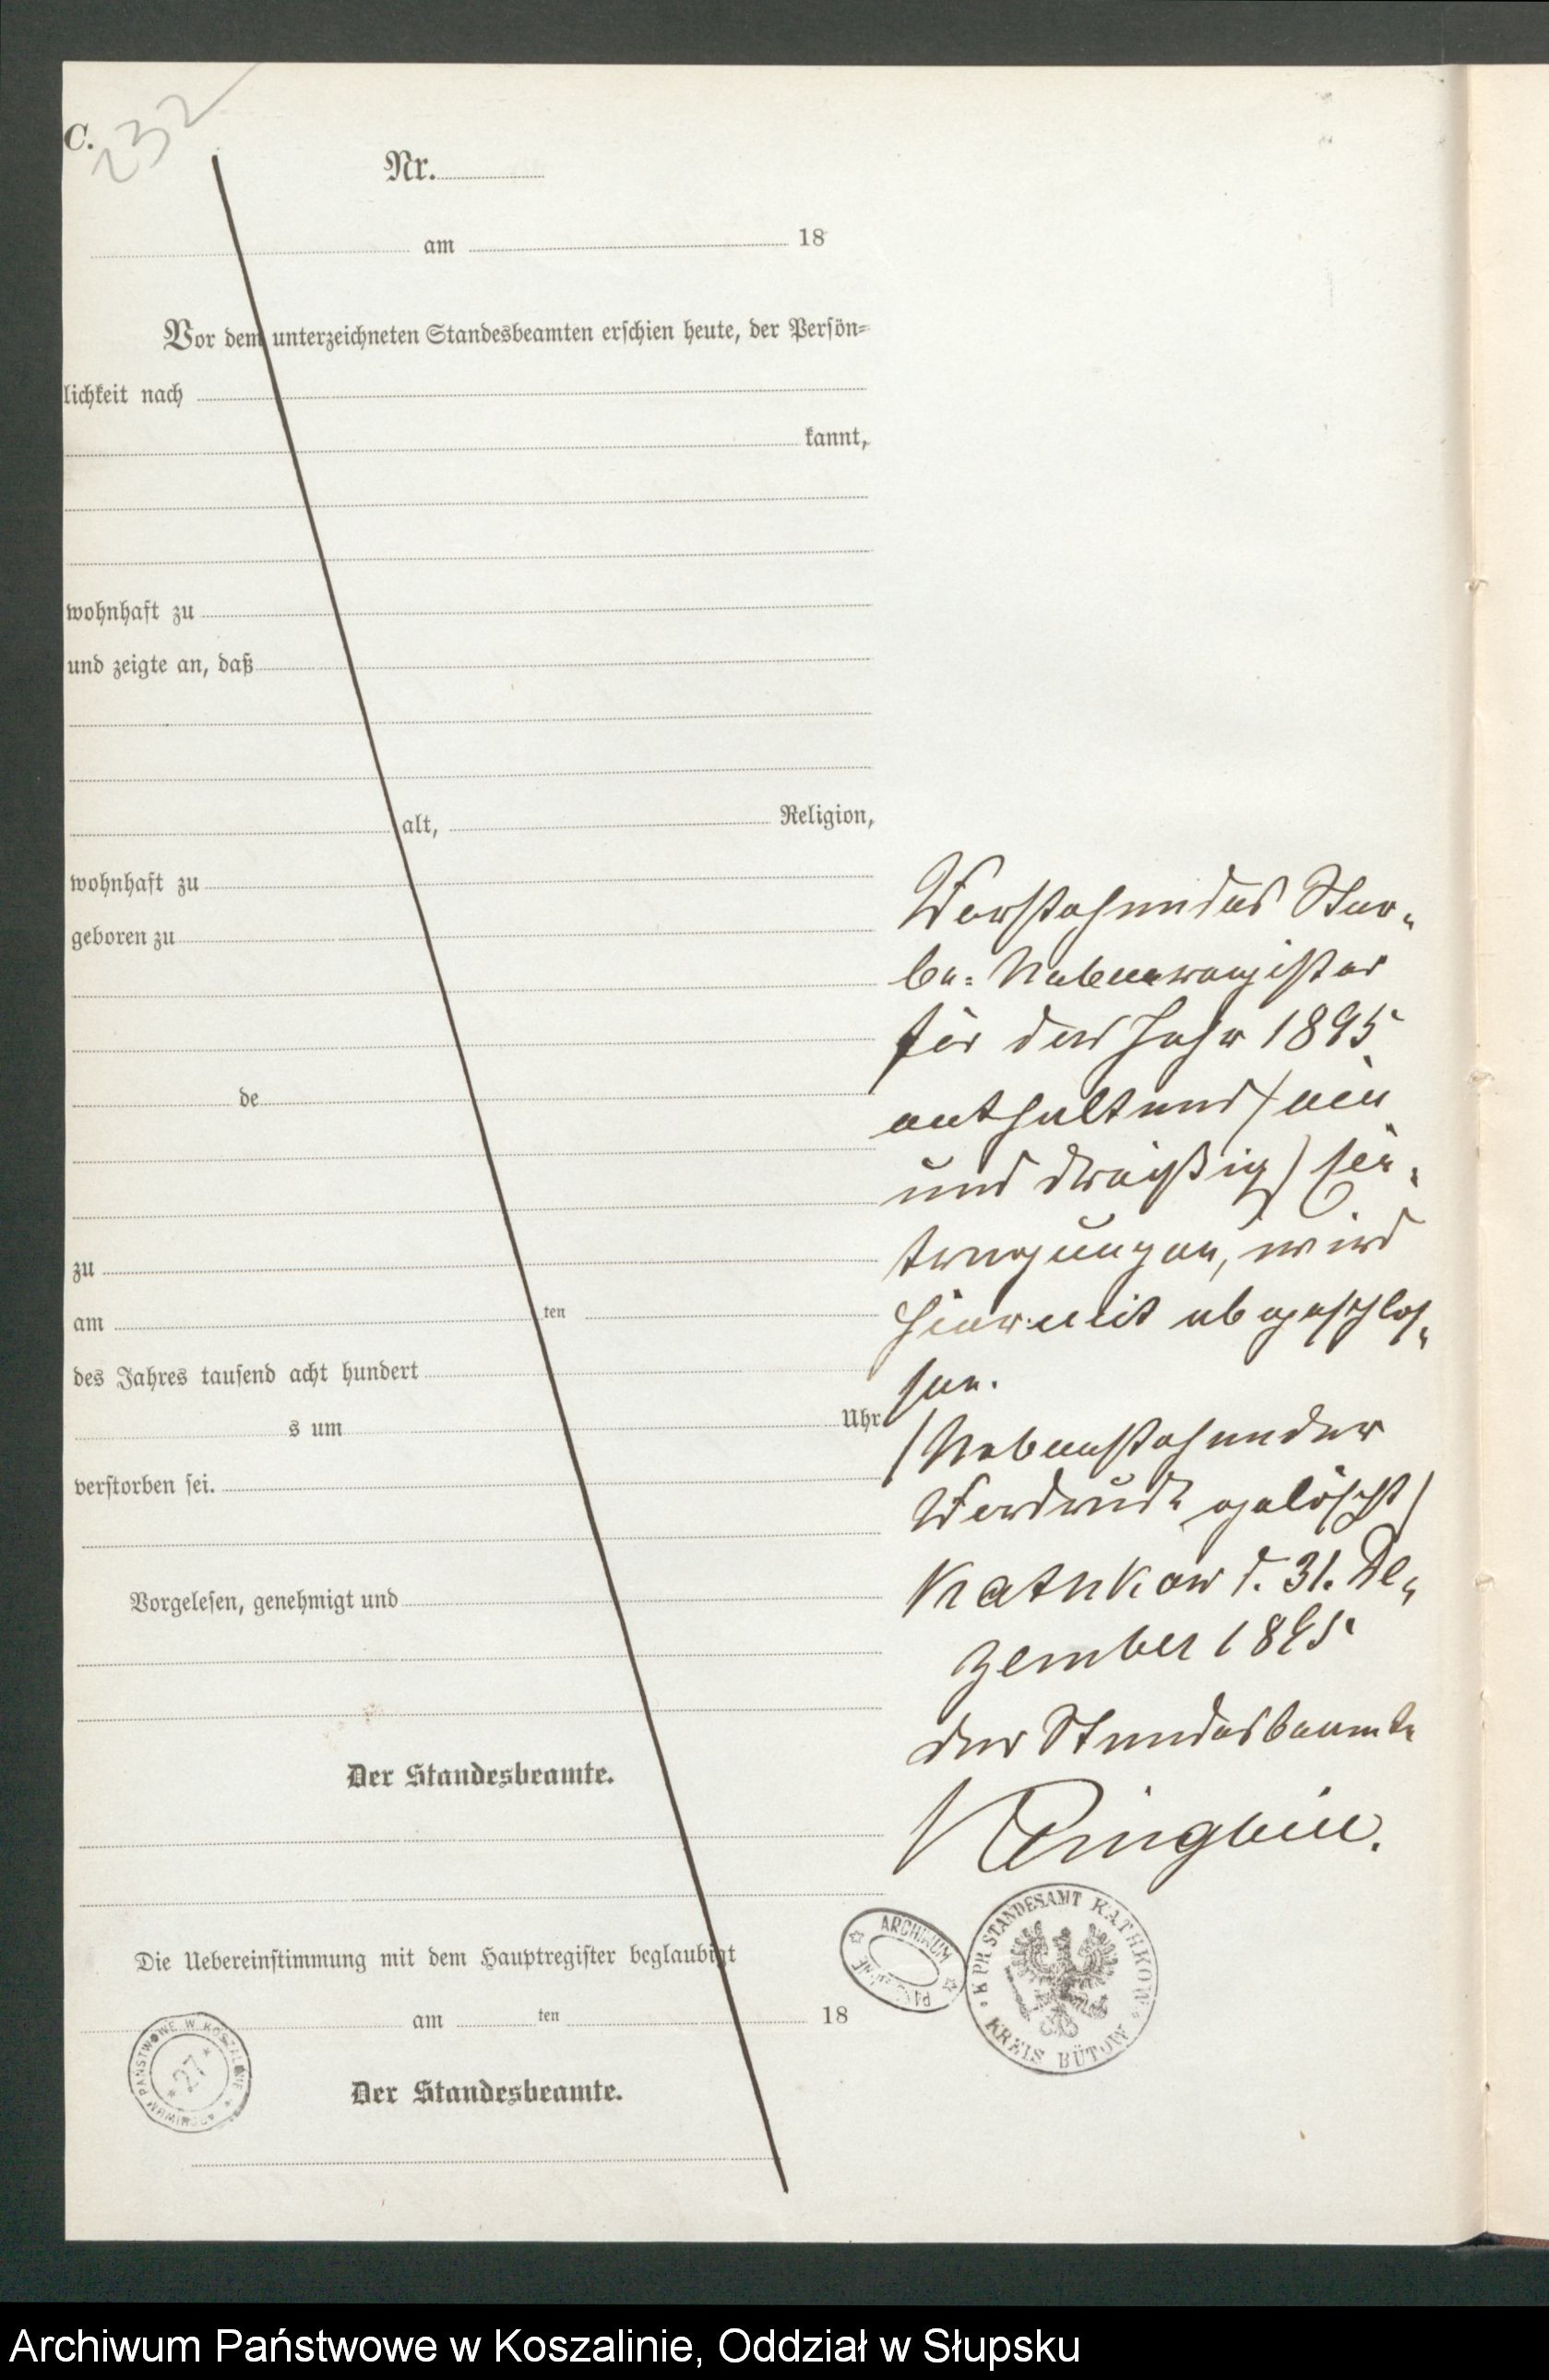 C.
232
Nr.
am 18
Vor dem unterzeichneten Standesbeamten erschien heute, der Persön=
lichkeit nach
kannt,
wohnhaft zu
und zeigte an, daß
alt, Religion,
wohnhaft zu
geboren zu
de
zu
am ten
des Jahres tausend acht hundert
s um Uhr
verstorben sei.
Vorgelesen, genehmigt und
Der Standesbeamte.
Die Uebereinstimmung mit dem Hauptregister beglaubigt
am ten 18
Der Standesbeamte.
Vorstehendes Ster-
be= Nebenregister
für das Jahr 1895
enthaltend (ein
und dreißig) Ein-
tragungen, wird
hiermit abgeschlos-
sen.
(Nebenstehender
Vordruck gelöscht)
Kathkow d. 31. De-
zember 1895
der Standesbeamte
K PR STANDESAMT KATHKOW
KREIS BÜTOW
ARCHIWUM
ARCHIWUM PAŃSTWOWE W KOSZALINIE
27
Archiwum Państwowe w Koszalinie, Oddział w Słupsku